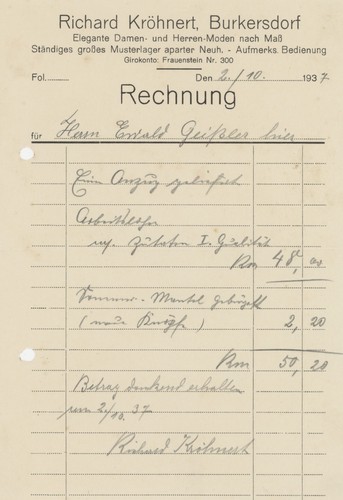 Richard Kröhnert, Burkersdorf
Elegante Damen- und Herren-Moden nach Maß
Ständiges großes Musterlager aparter Neuh. - Aufmerks. Bedienung
Girokonto: Frauenstein Nr. 300
Fol. Den 2./10. 1937
Rechnung
für Herrn Ewald Geißler hier
Ein Anzug geliefert
Arbeitslohn
Zutaten I. Qualität
Rm 48,00
Sommer-Mantel gebügelt
(neue Knöpfe) 2,20
Rm 50,20
Betrag dankend erhalten
am 2./10. 37
Richard Kröhnert